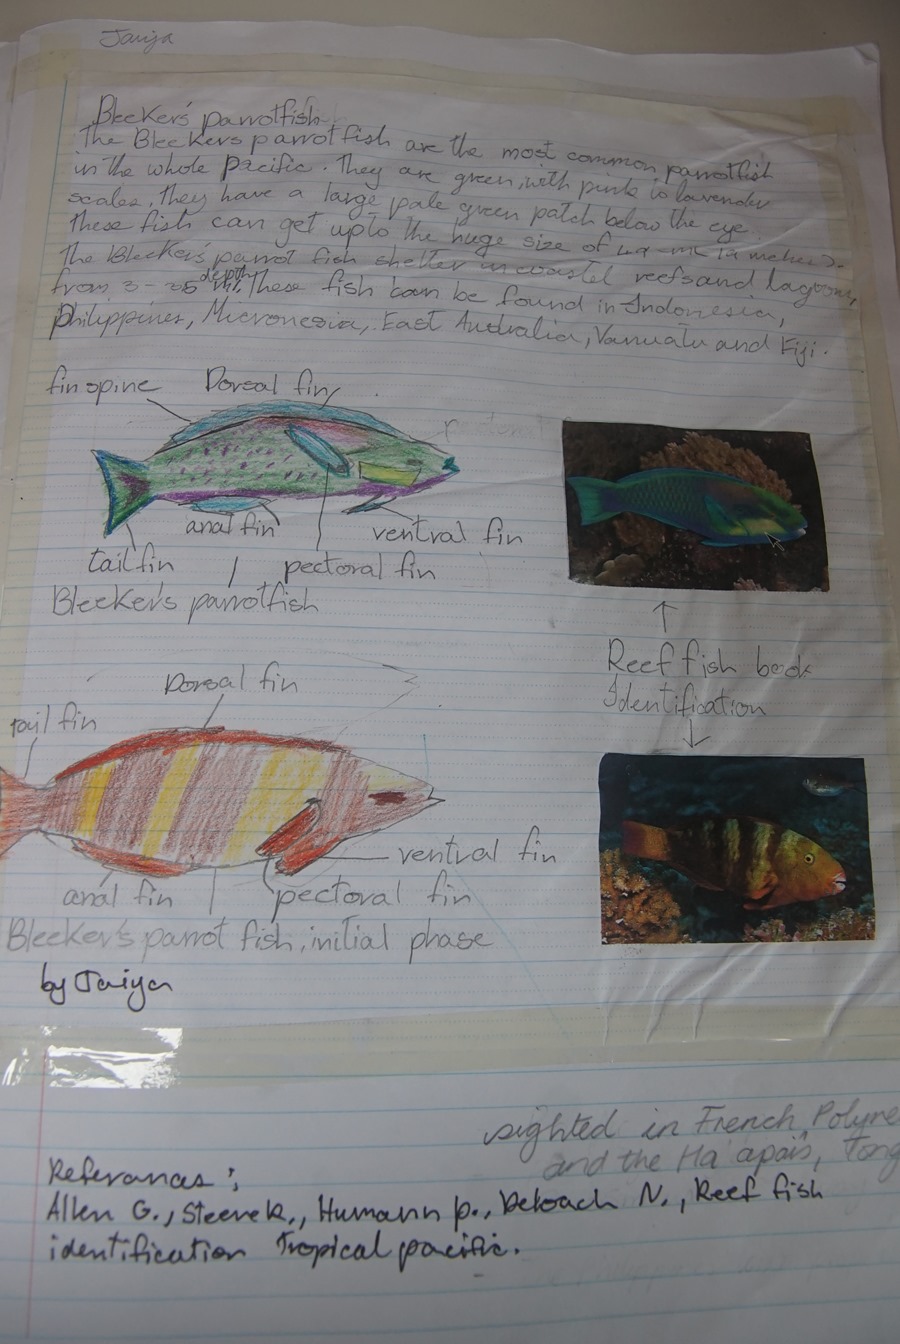 Jaiya
Bleeker's parrotfish
The Bleekers parrotfish are the most common parrotfish
in the whole Pacific. They are green, with pink to lavender
scales, they have a large pale green patch below the eye.
These fish can get upto the huge size of
The Bleeker's parrot fish shelter in coastel reefs and lagoons,
from 3 - 35 m depth. These fish can be found in Indonesia,
Philippines, Micronesia, East Australia, Vanuatu and Fiji.
fin spine Dorsal fin
anal fin ventral fin
tail fin pectoral fin
Bleeker's parrotfish
Reef fish book
Identification
Dorsal fin
tail fin
ventral fin
anal fin pectoral fin
Bleeker's parrot fish, initial phase
by Jaiya
sighted in French Polyne
and the Ha'apais, Tong
Referanas;
Allen G., Steene R., Humann p., Deloach N., Reef fish
identification Tropical pacific.